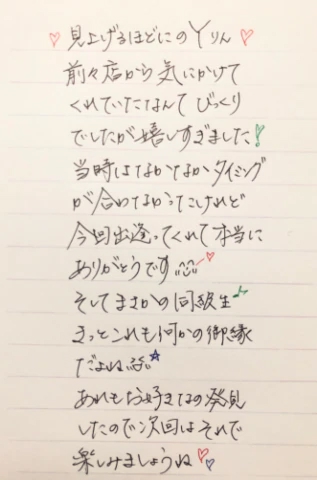 ♡見上げるほどにのYりん♡
前々店から気にかけて
くれていたなんてびっくり
でしたが嬉しすぎました!
当時はなかなかタイミング
が合わなかったけれど
今回出逢ってくれて本当に
ありがとうです♡
そしてまさかの同級生♪
きっとこれも何かの御縁
だよね☆
あれもお好きなの発見
したので次回はそれで
楽しみましょうね♡♡